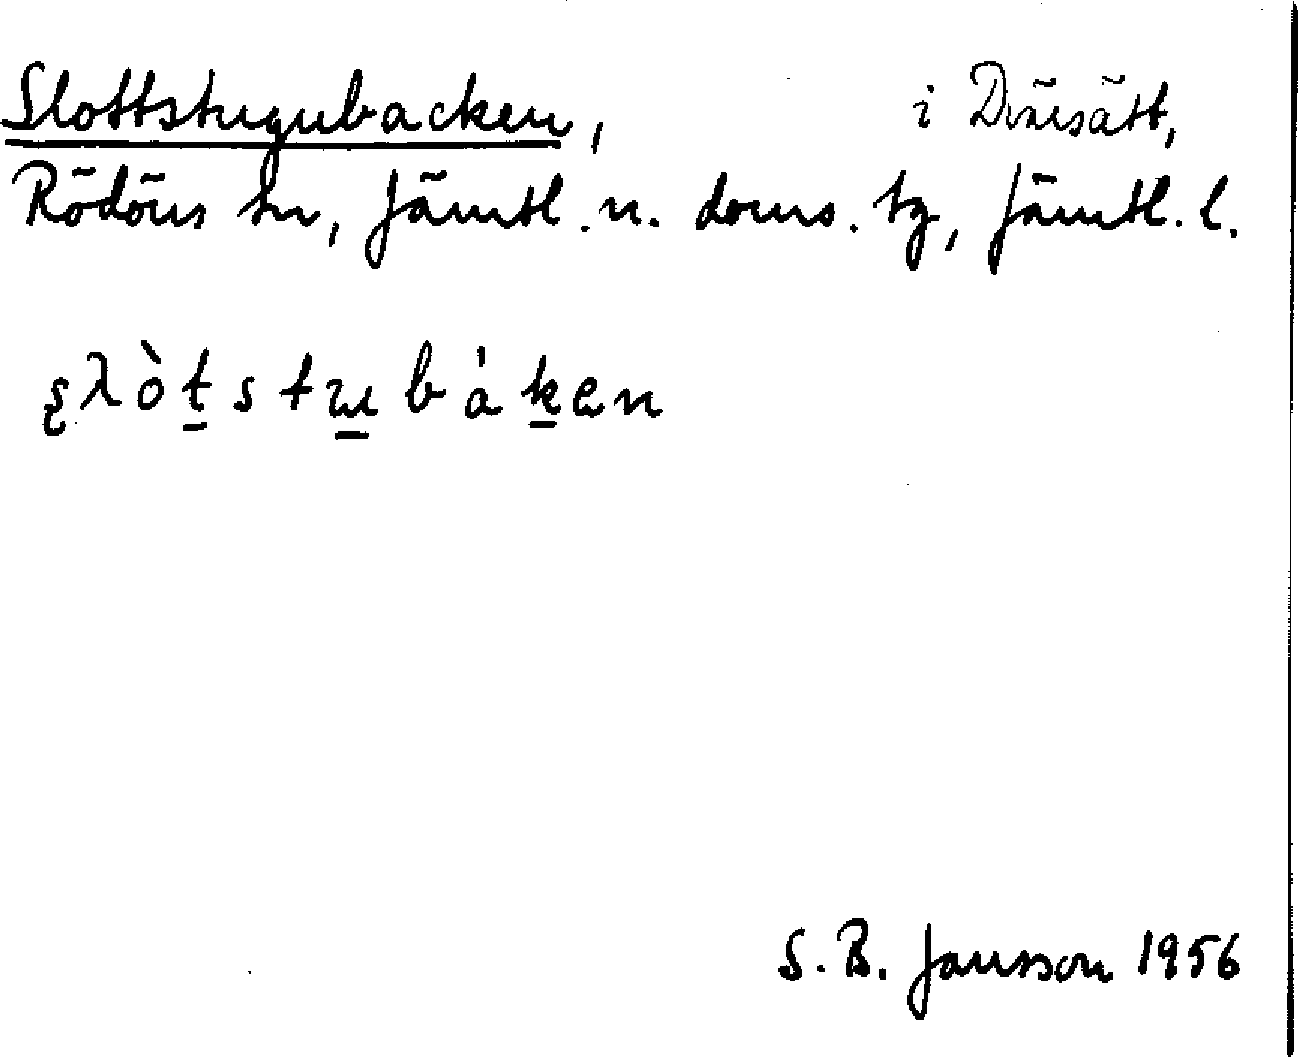 Slottstugubacken, i Dväsätt,
Rödöns sn, Jämtl. n. doms. tg, Jämtl. l.
ʂλòt̲stu̲bàk̲en
S. B. Jansson 1956